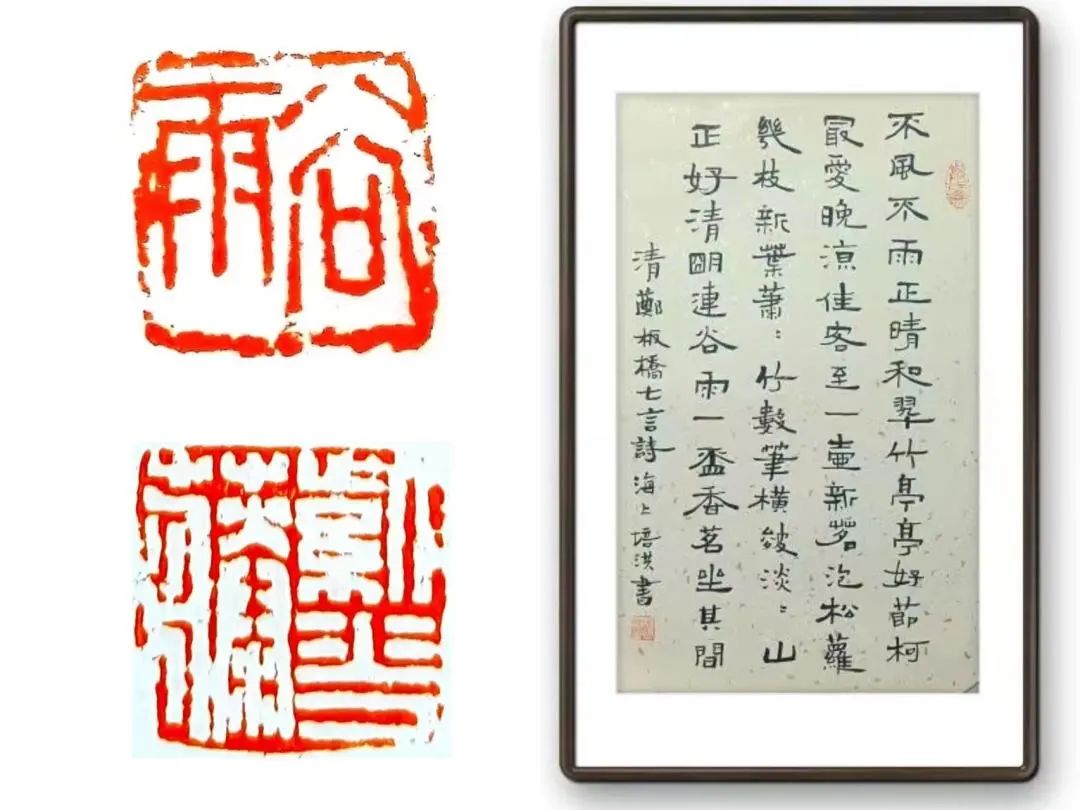 谷雨
不風不雨正晴和翠竹亭亭好節柯
最愛晚涼佳客至一壺新茗泡松蘿
幾枝新葉蕭：竹數筆橫皴淡：山
正好清明連谷雨一盃香茗坐其間
清鄭板橋七言詩海上培洪書